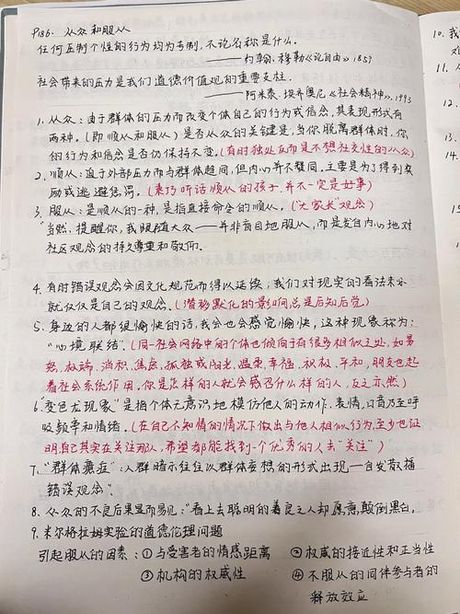 P186. 从众和服从
任何压制个性的行为均为专制,不论名称是什么。
——约翰·穆勒《论自由》1859
社会带来的压力是我们道德价值观的重要支柱。
——阿米泰·埃齐奥尼《社会精神》1993
1. 从众:由于群体的压力而改变个体自己的行为或信念,其表现形式有
两种。(即顺从和服从)是否从众的关键是,当你脱离群体时,你
的行为和信念是否仍保持不变。(有时独处反而是不想社交性的从众)
2. 顺从:迫于外部压力而与群体趋同,但内心并不赞同,主要是为了得到奖
励或逃避惩罚。(乖巧听话顺从的孩子,并不一定是好事)
3. 服从:是顺从的一种,是指直接命令的顺从。("大家长"观念)
"当然,提醒你,我跟随大众——并非盲目地服从,而是发自内心地对
社区观念的持久尊重和敬仰。
4. 有时错误观念会因文化规范而得以延续,我们对现实的看法未必
就仅仅是自己的观念。(潜移默化的影响总是后知后觉)
5. 身边的人都很愉快的话,我会也会感觉愉快,这种现象称为:
"心境联结"。(同一社会网络中的个体也倾向于有很多相似之处,如暴
怒、极端、消极、焦虑、孤独或阳光、温柔、幸福、积极、平和,朋友也起
着社会系统作用,你是怎样的人就会感召什么样的人,反之亦然)
6."变色龙现象"是指个体无意识地模仿他人的动作、表情、口音乃至呼
吸频率和情绪。(在自己不知情的情况下做出与他人相似行为,至少也证
明自己其实在关注那人,希望都能找到一个优秀的人去"关注")
7. "群体癔症":人群暗示往往以群体妄想的形式出现—自发散播
错误观念。
8. 从众的不良后果显而易见:"看上去聪明的善良之人却愿意颠倒黑白。
9. 米尔格拉姆实验的道德伦理问题
引起服从的因素:①与受害者的情感距离 ②权威的接近性和正当性
③机构的权威性 ④不服从的同伴参与者的
释放效应
10. 我
12.
13.
14.